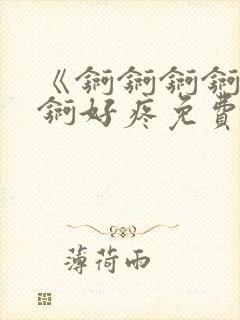 《锕锕锕锕
锕好疼免費
薄荷雨